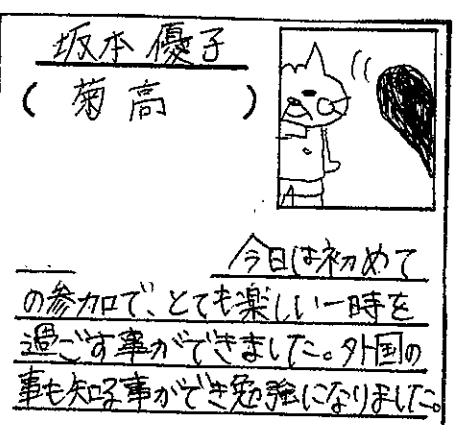 坂本優子
（菊高）
今日は初めて
の参加で、とても楽しい一時を
過ごす事ができました。外国の
事も知る事ができ勉強になりました。